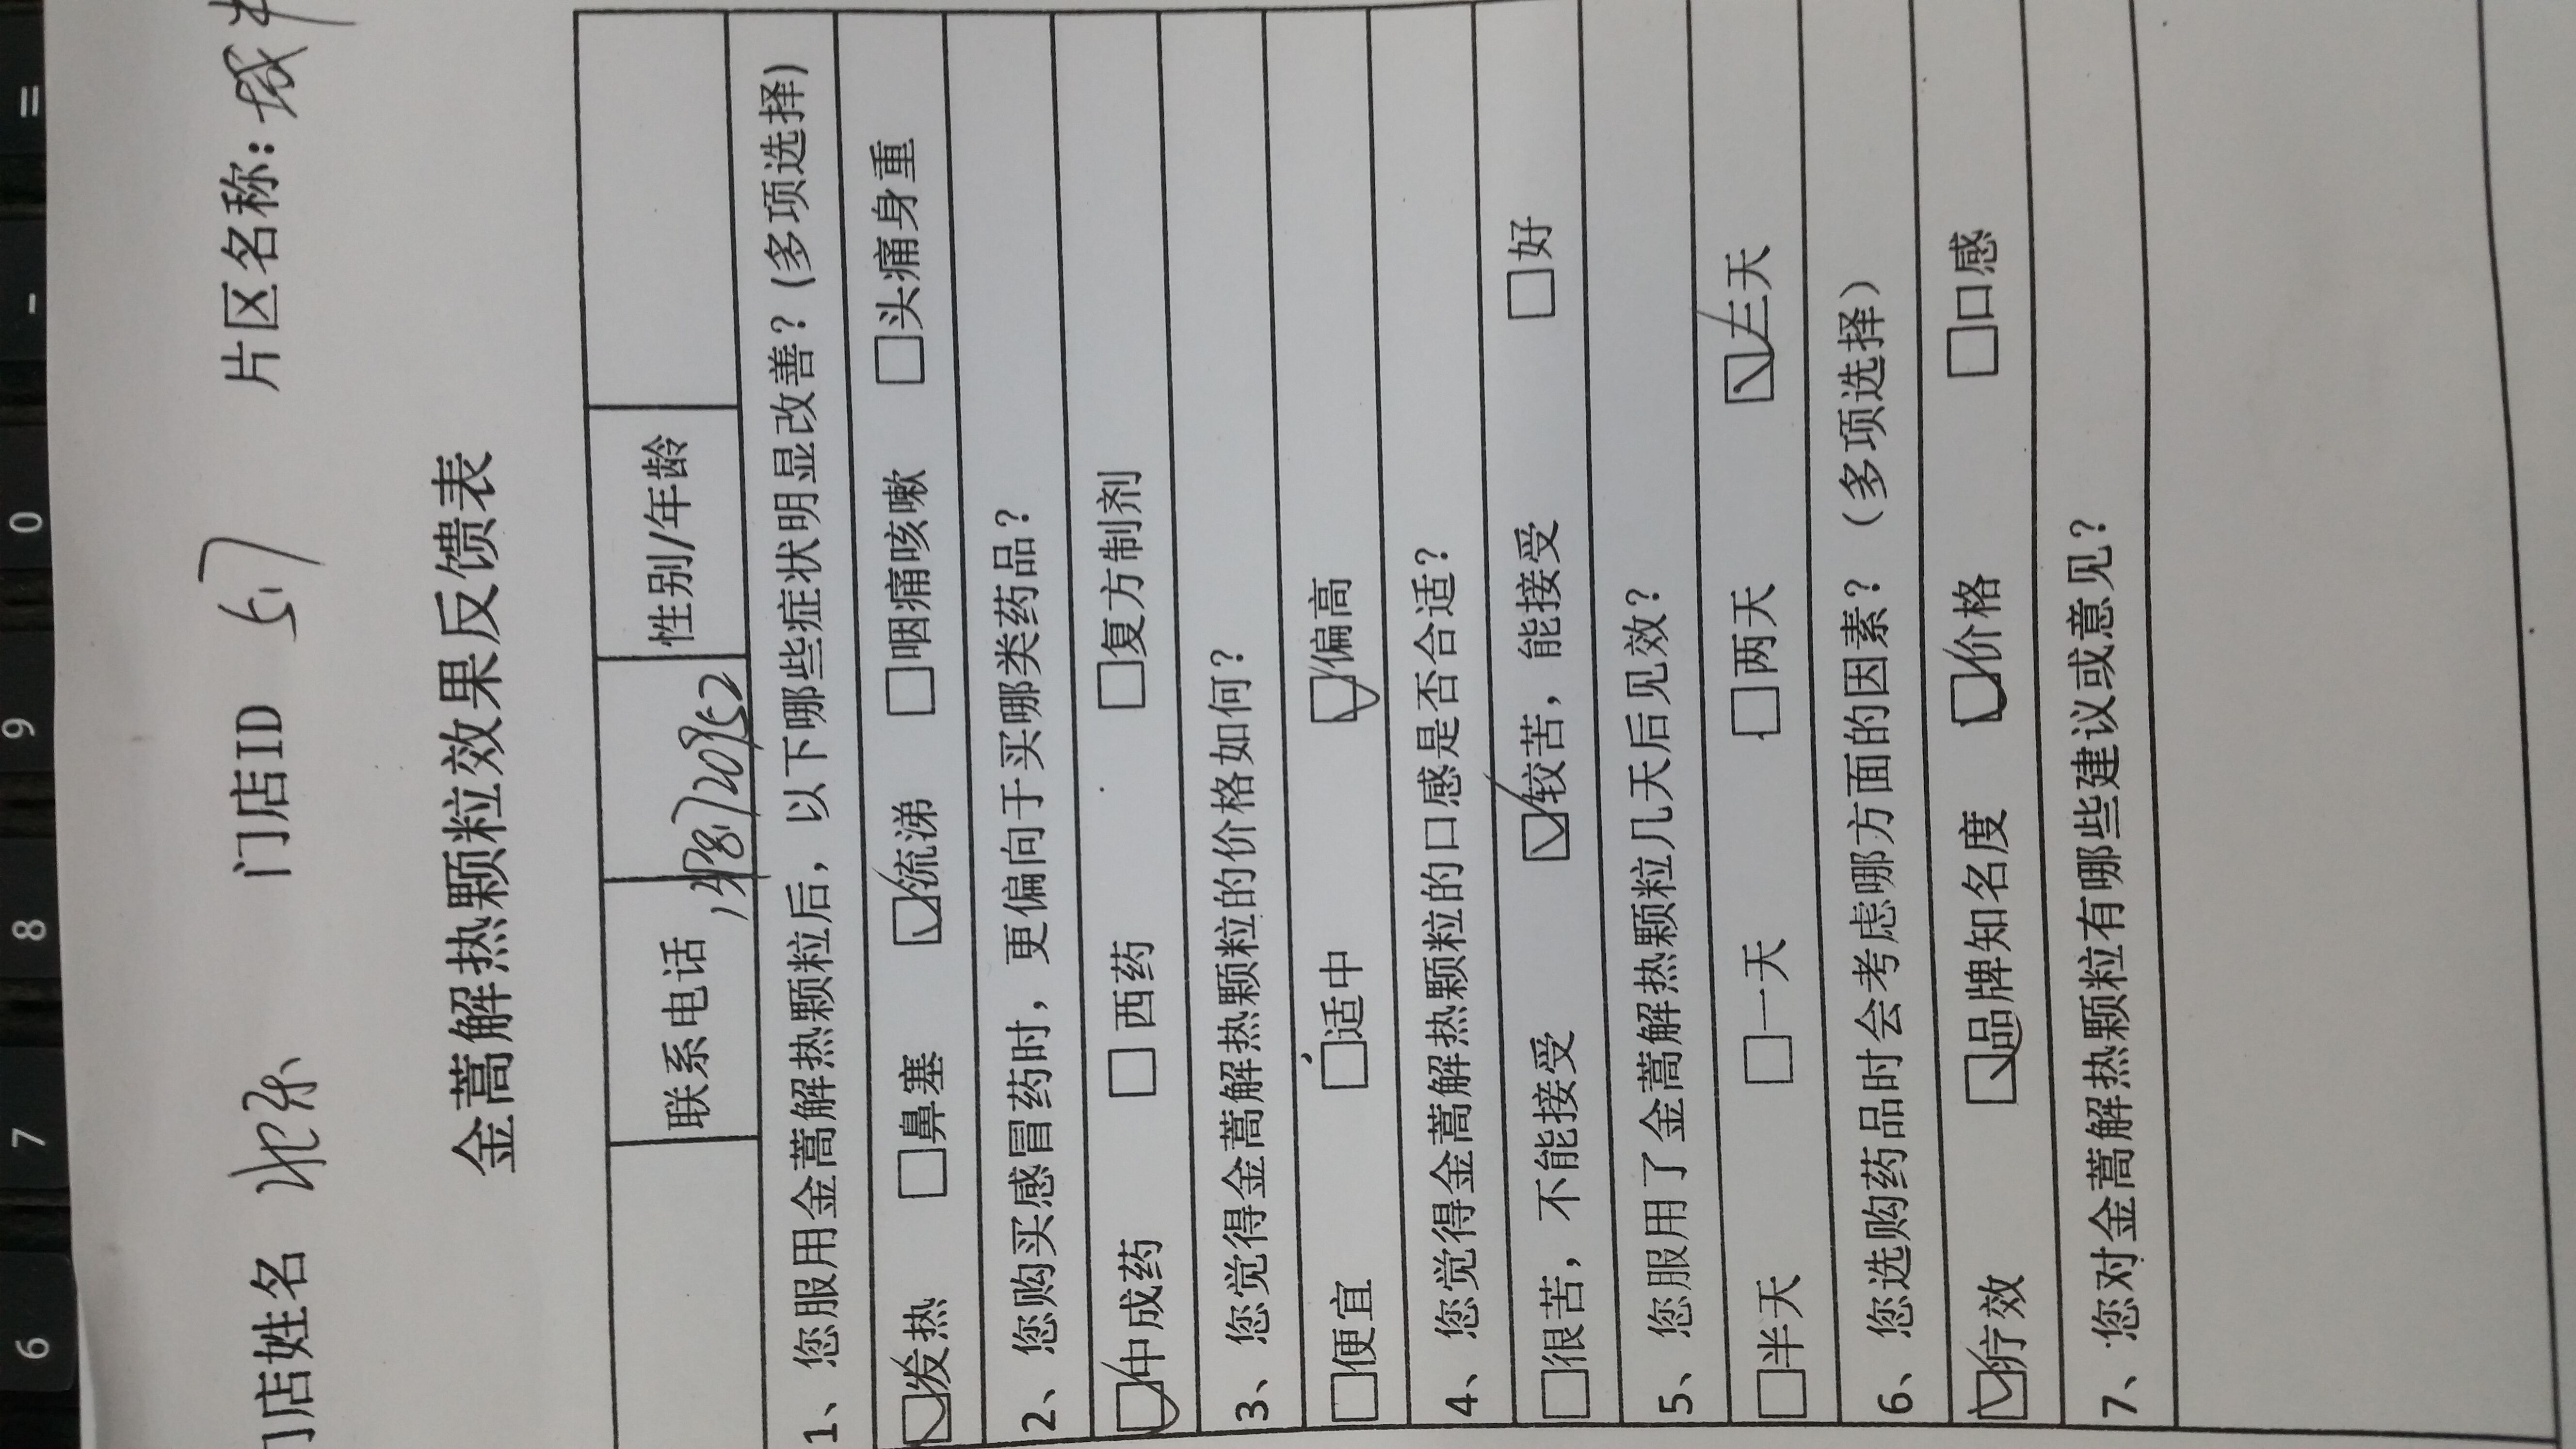 门店姓名 门店ID 517 片区名称：城
金蒿解热颗粒效果反馈表
联系电话 性别/年龄
1、您服用金蒿解热颗粒后，以下哪些症状明显改善？(多项选择)
☑发热 □鼻塞 ☑流涕 □咽痛咳嗽 □头痛身重
2、您购买感冒药时，更偏向于买哪类药品？
☑中成药 □西药 □复方制剂
3、您觉得金蒿解热颗粒的价格如何？
□便宜 □适中 ☑偏高
4、您觉得金蒿解热颗粒的口感是否合适？
□很苦，不能接受 ☑较苦，能接受 □好
5、您服用了金蒿解热颗粒几天后见效？
□半天 □一天 □两天 ☑三天
6、您选购药品时会考虑哪方面的因素？（多项选择）
☑疗效 ☑品牌知名度 ☑价格 □口感
7、您对金蒿解热颗粒有哪些建议或意见？
6 7 8 9 0 - =